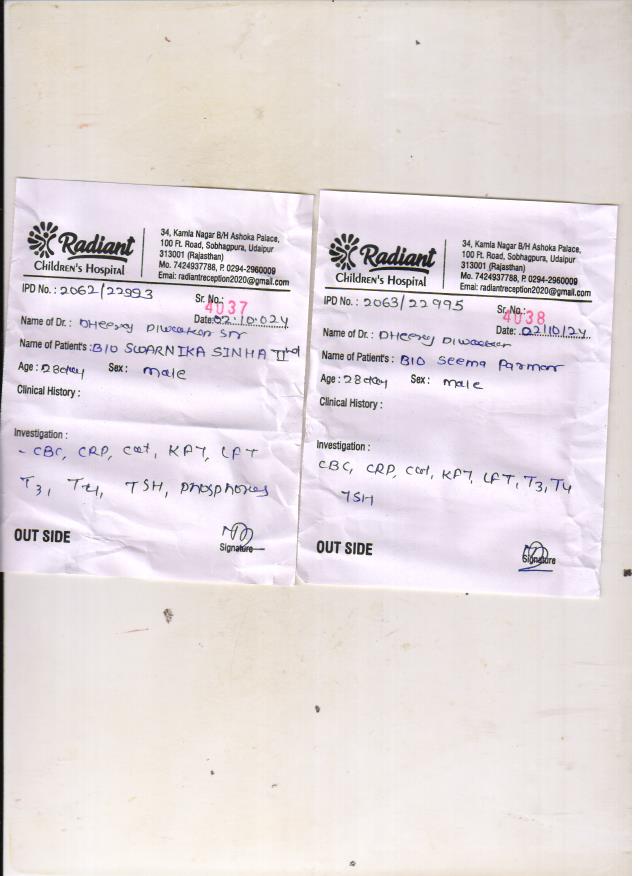 Radiant
Children's Hospital
34, Kamla Nagar B/H Ashoka Palace,
100 Ft. Road, Sobhagpura, Udaipur
313001 (Rajasthan)
Mo. 7424937788, P. 0294-2960009
Emai: radiantreception2020@gmail.com
IPD No.: 2062/22993
Sr. No.: 4037
Date: 02.10.024
Name of Dr.: DHeeraj Diwakar Sir
Name of Patient's: B|O SWARNIKA SINHA IInd
Age: 28day Sex: male
Clinical History :
Investigation :
- CBC, CRP, cal, KFT, LFT
T3, T4, TSH, phosphorus
OUT SIDE
Signature
Radiant
Children's Hospital
34, Kamla Nagar B/H Ashoka Palace,
100 Ft. Road, Sobhagpura, Udaipur
313001 (Rajasthan)
Mo. 7424937788, P. 0294-2960009
Emai: radiantreception2020@gmail.com
IPD No.: 2063/22995
Sr. No.: 4038
Date: 02/10/24
Name of Dr.: DHeeraj Diwakar
Name of Patient's: B|O Seema Parmar
Age: 28day Sex: male
Clinical History :
Investigation :
CBC, CRP, cal, KFT, LFT, T3, T4
TSH
OUT SIDE
Signature